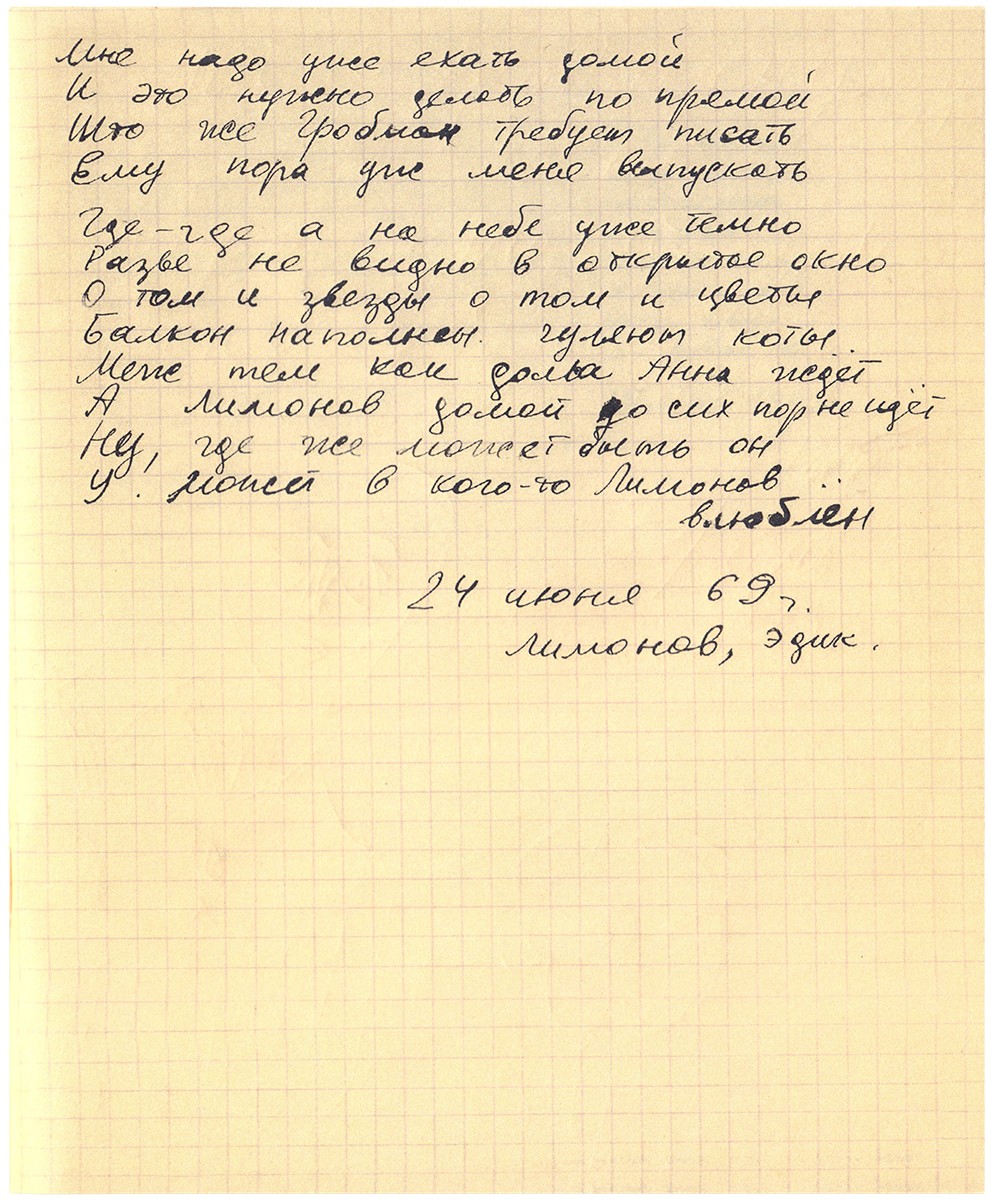 Мне надо уже ехать домой
И это нужно делать по прямой
Што же Гробман требует писать
Ему пора уж меня выпускать
Где-где а на небе уже темно
Разве не видно в открытое окно
О том и звезды о том и цветы
Балкон наполнен. гуляют коты
Меж тем как дома Анна ждёт
А Лимонов домой до сих пор не идёт
Ну, где же может быть он
У. может в кого-то Лимонов
влюблён
24 июня 69 г.
Лимонов, Эдик.